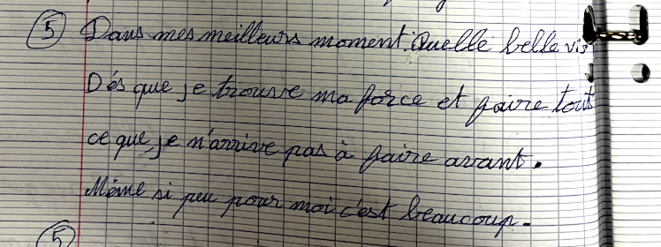 ⑤ Dans mes meilleurs moment. Quelle belle vis
Dès que je trouve ma force et faire tout
ce que je n'arrive pas à faire avant.
Même si peu pour moi c'est beaucoup.
⑤